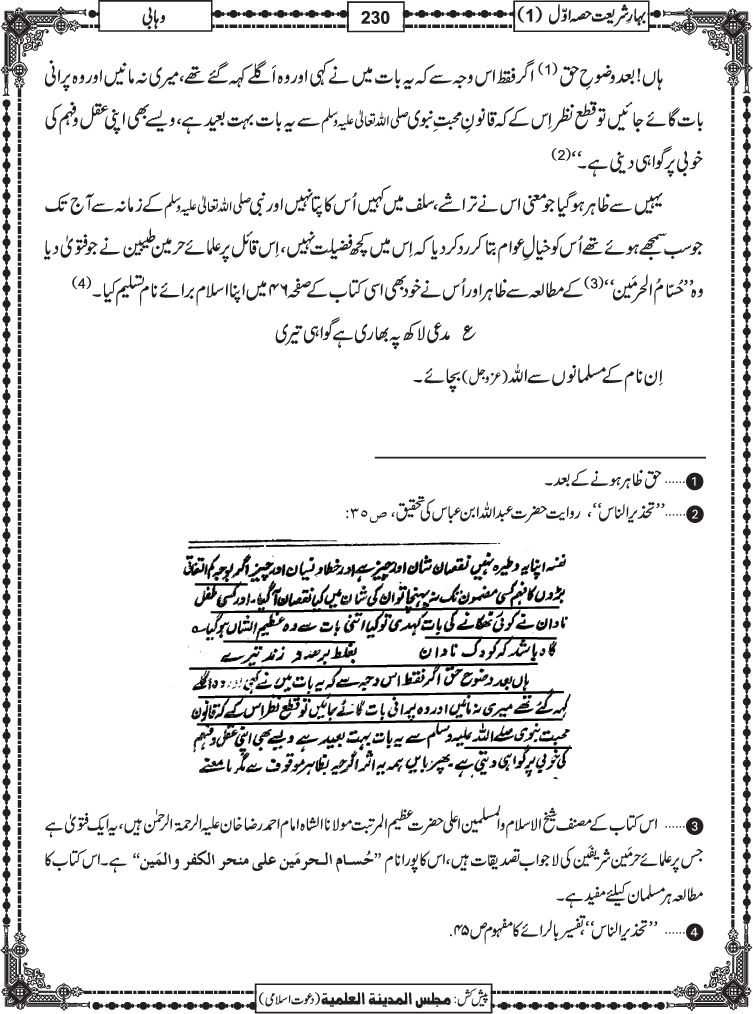 بہار شریعت حصہ اوّل (1)
230
وہابی
ہاں! بعد وضوحِ حق (1) اگر فقط اس وجہ سے کہ یہ بات میں نے کہی اور وہ اَگلے کہہ گئے تھے، میری نہ مانیں اور وہ پرانی
بات گائے جائیں تو قطع نظر اِس کے کہ قانونِ محبتِ نبوی صلی اللہ تعالٰی علیہ وسلم سے یہ بات بہت بعید ہے، ویسے بھی اپنی عقل و فہم کی
خوبی پر گواہی دینی ہے۔‘‘ (2)
یہیں سے ظاہر ہوگیا جو معنی اس نے تراشے، سلف میں کہیں اُس کا پتا نہیں اور نبی صلی اللہ تعالٰی علیہ وسلم کے زمانہ سے آج تک
جو سب سمجھے ہوئے تھے اُس کو خیالِ عوام بتا کر رد کردیا کہ اِس میں کچھ فضیلت نہیں، اِس قائل پر علمائے حرمین طیبین نے جو فتویٰ دیا
وہ ’’حُسّامُ الحرمَین‘‘ (3) کے مطالعہ سے ظاہر اور اُس نے خود بھی اسی کتاب کے صفحہ ۴۶ میں اپنا اسلام برائے نام تسلیم کیا۔ (4)
ع مدعی لاکھ پہ بھاری ہے گواہی تیری
اِن نام کے مسلمانوں سے اللہ (عزوجل) بچائے۔
1 ...... حق ظاہر ہونے کے بعد۔
2 ...... ’’تحذیر الناس‘‘، روایت حضرت عبد اللہ ابن عباس کی تحقیق، ص ۳۵:
نفنہ اپنا یہ وطیرہ نہیں نقصان شان اور چیز ہے اور خطا و نسیان اور چیز اگر بوجہ کم التفاتی
بڑوں کا فہم کسی مضمون تک نہ پہنچا تو ان کی شان میں کیا نقصان آگیا۔ اور کسی طفل
نادان نے کوئی ٹھکانے کی بات کہدی تو کیا اتنی بات سے وہ عظیم الشان ہوگیا۔
گاہ باشد کہ کودک نادان بغلط بر ہدف زند تیرے
ہاں بعد وضوح حق اگر فقط اس وجہ سے کہ یہ بات میں نے کہی اور وہ اگلے
کہہ گئے تھے میری نہ مانیں اور وہ پرانی بات گائے جائیں تو قطع نظر اس کے کہ قانون
محبت نبوی صلے اللہ علیہ وسلم سے یہ بات بہت بعید ہے ویسے بھی اپنی عقل و فہم
کی خوبی پر گواہی دینی ہے پھر باایں ہمہ یہ اثر اگرچہ بظاہر موقوف ہے مگر با معنے
3 ...... اس کتاب کے مصنف شیخ الاسلام والمسلمین اعلی حضرت عظیم المرتبت مولانا الشاہ امام احمد رضا خان علیہ الرحمۃ الرحمٰن ہیں، یہ ایک فتویٰ ہے
جس پر علمائے حرمَین شریفَین کی لاجواب تصدیقات ہیں، اس کا پورا نام ’’حُسام الحرمَین علی منحر الکفر والمَین‘‘ ہے۔ اس کتاب کا
مطالعہ ہر مسلمان کیلئے مفید ہے۔
4 ...... ’’تحذیر الناس‘‘، تفسیر بالرائے کا مفہوم ص ۴۵.
پیش کش: مجلس المدینۃ العلمیۃ (دعوت اسلامی)